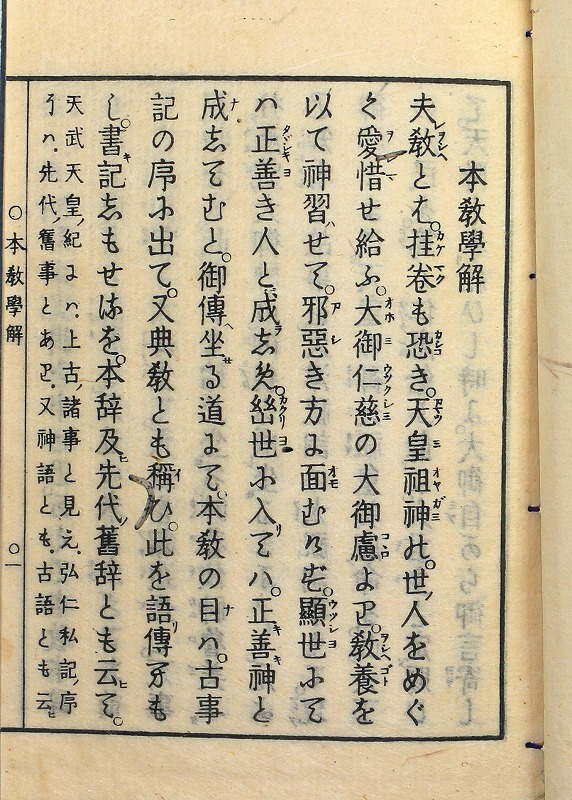 本教學解
夫教とは。挂卷も恐き。天皇祖神の。世人をめぐ
く愛惜せ給ふ。大御仁慈の大御慮より。教養を
以て神習せて。邪惡き方に面むけず。顯世にて
ハ正善き人と成しめ。幽世に入てハ。正善神と
成してむと。御傳坐る道にて。本教の目ハ。古事
記の序に出て。又典教とも稱ひ。此を語傳ても
し。書記しもせるを。本辞及先代舊辞とも云て。
天武天皇ノ紀にハ、上古ノ諸事と見え、弘仁私記ノ序
にハ、先代ノ舊事とあり、又神語とも、古語とも云ヒ
○本教學解
○一